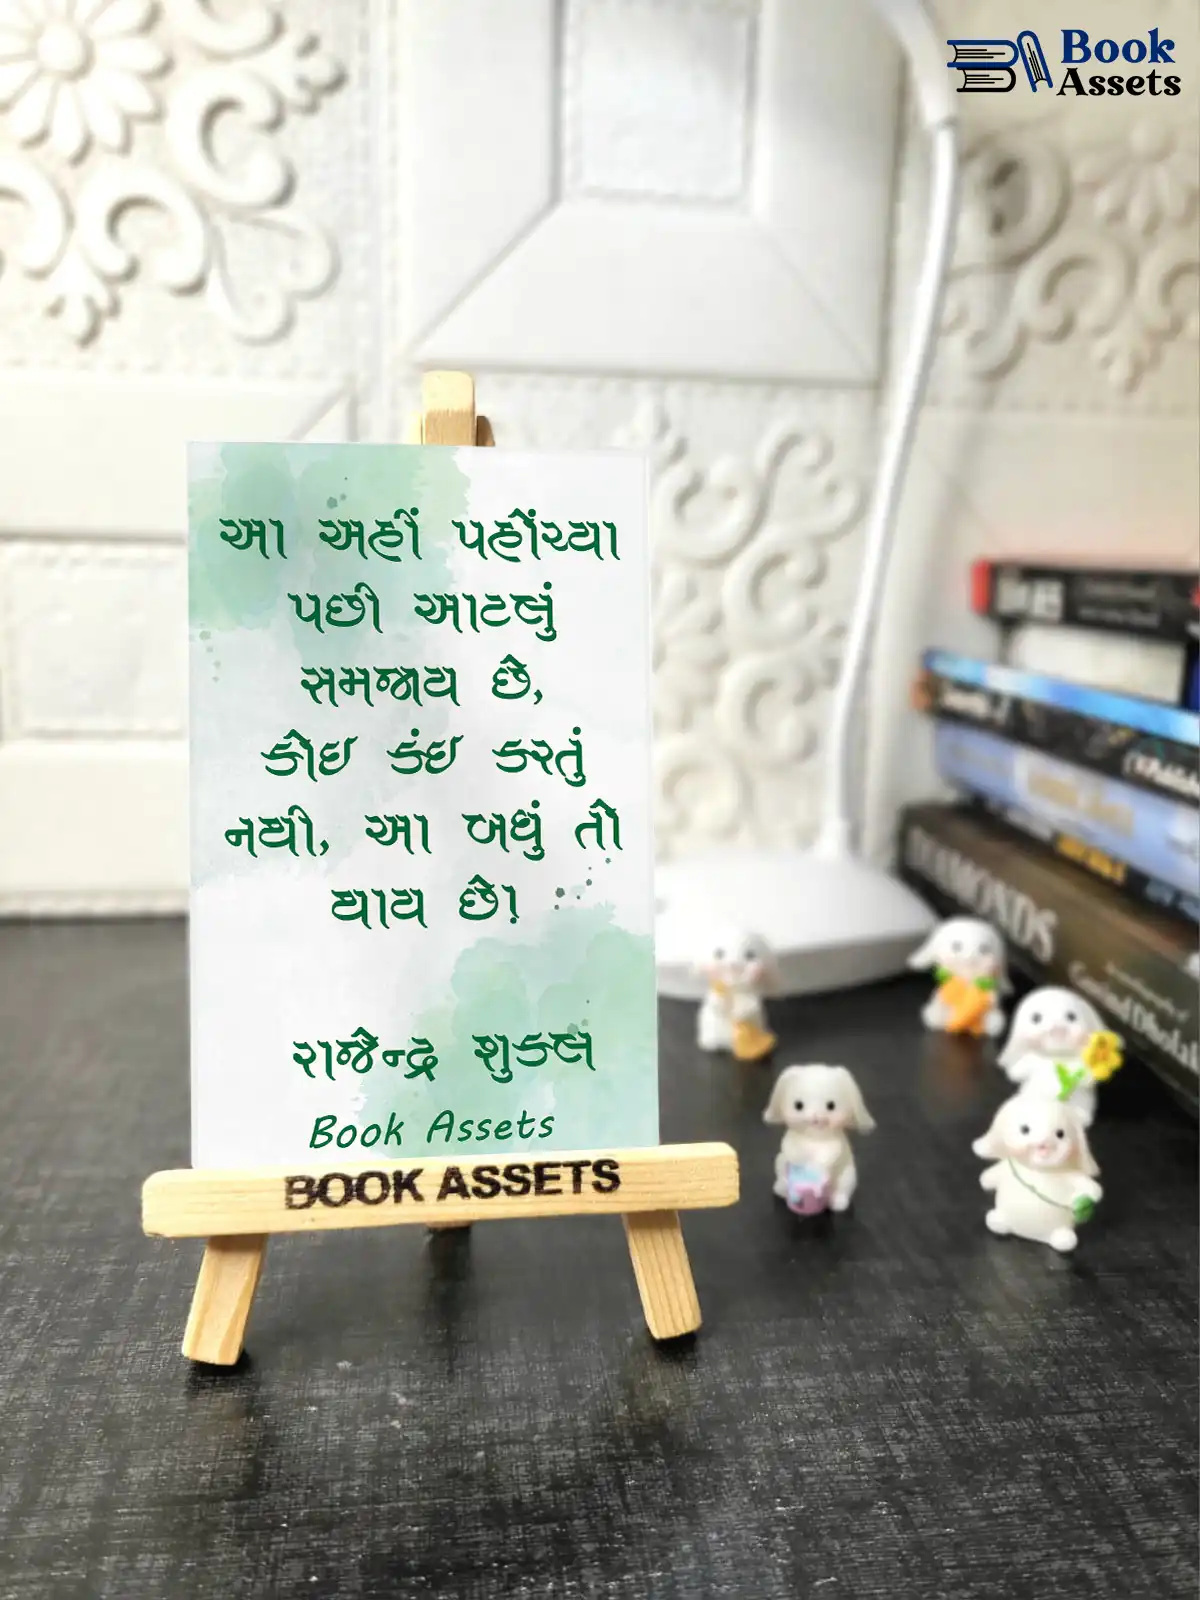 Book
Assets
આ અહીં પહોંચ્યા
પછી આટલું
સમજાય છે,
કોઇ કંઇ કરતું
નથી, આ બધું તો
થાય છે!
રાજેન્દ્ર શુકલ
Book Assets
BOOK ASSETS